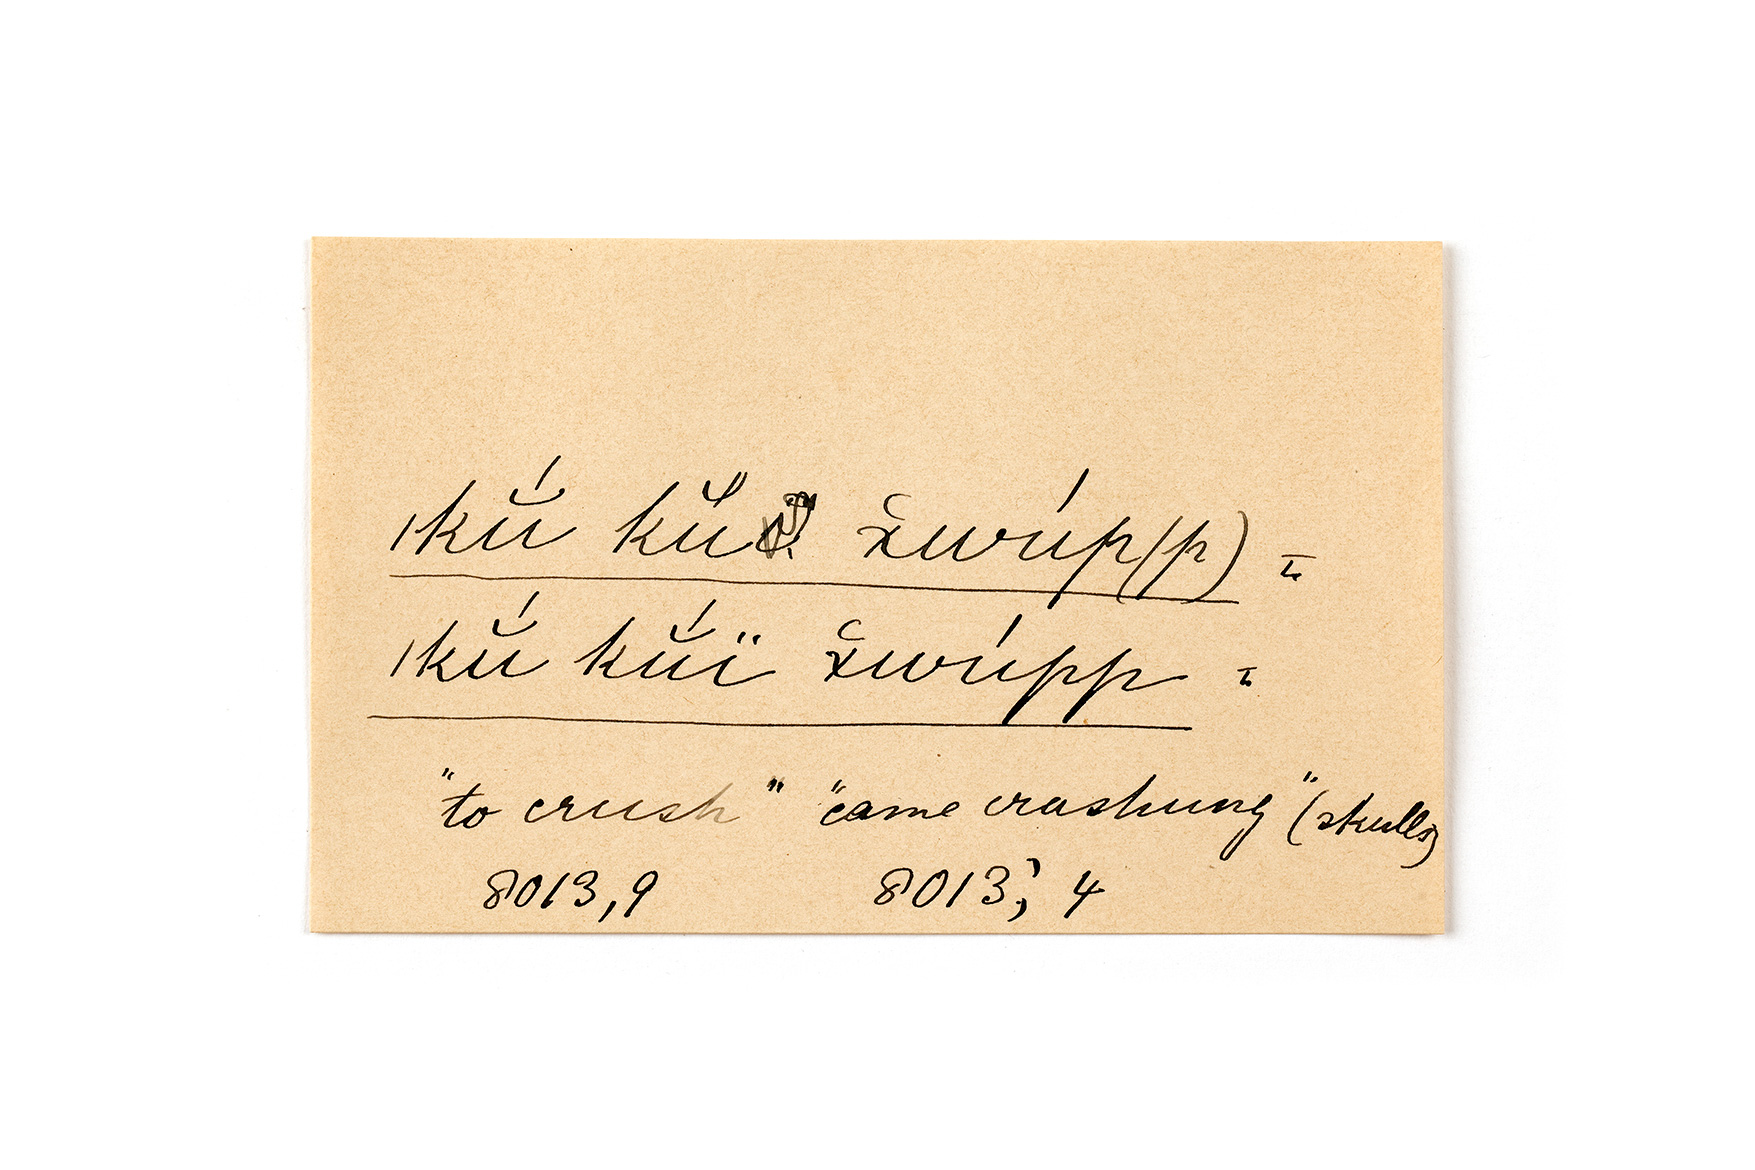 ıkŭ́ kŭ́ x̆wúp(p) =
ıkŭ́ kŭ́ï x̆wúpp =
"to crush" "came crashing" (skulls)
8013,9 8013; 4